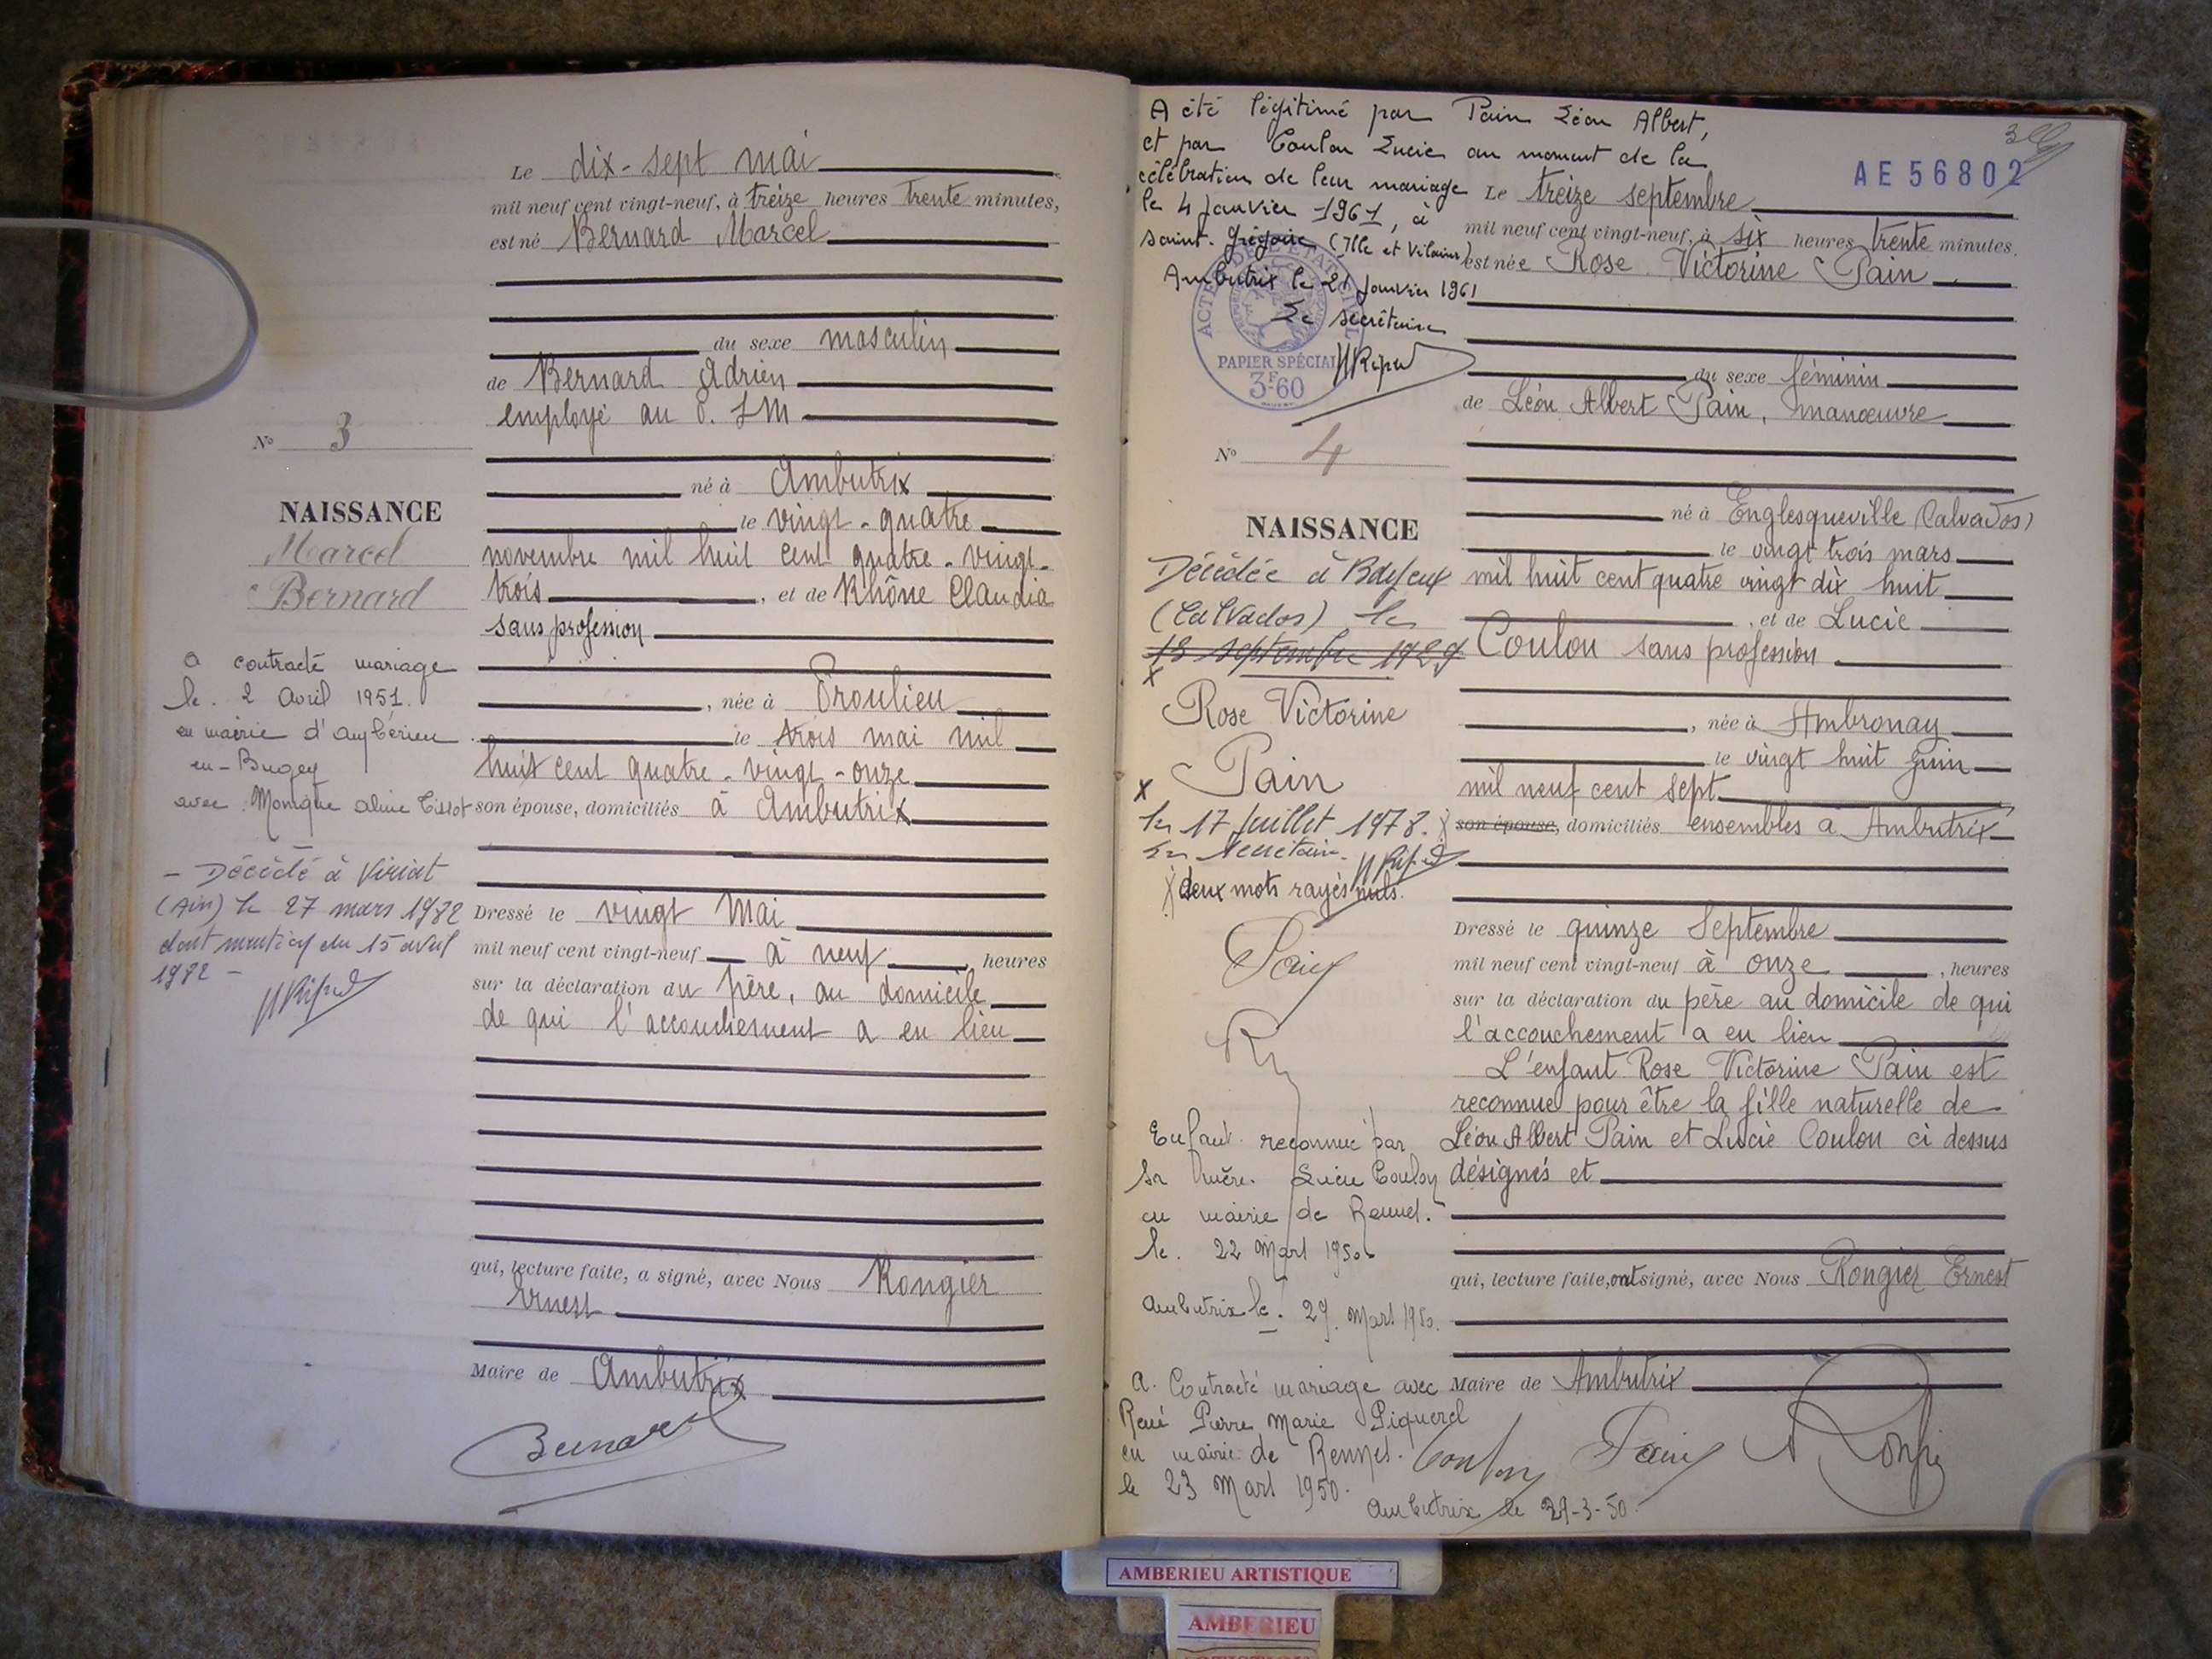 Le dix-sept mai
mil neuf cent vingt-neuf, à treize heures trente minutes,
est né Bernard Marcel
du sexe masculin
de Bernard Adrien
employé au P. L M
né à Ambutrix
le vingt-quatre
novembre mil huit cent quatre-vingt-
trois, et de Rhône Claudia
sans profession
, née à Proulieu
le trois mai mil
huit cent quatre-vingt-onze
son épouse, domiciliés à Ambutrix
Dressé le vingt Mai
mil neuf cent vingt-neuf à neuf, heures
sur la déclaration du père, au domicile
de qui l'accouchement a eu lieu
qui, lecture faite, a signé, avec Nous Rongier
Ernest
Maire de Ambutrix
Bernard
N° 3
NAISSANCE
Marcel
Bernard
a contracté mariage
le. 2 Avril 1951.
en mairie d'Ambérieu
en-Bugey
avec Monique Aline Tissot
- Décédé à Viriat
(Ain) le 27 mars 1982
dont mention du 15 avril
1982 -
A été légitimé par Pain Léon Albert,
et par Coulon Lucie au moment de la
célébration de leur mariage
le 4 Janvier 1961, à
Saint-Grégoire (Ille et Vilaine)
Ambutrix le 21 Janvier 1961
Le secrétaire
PAPIER SPÉCIAL
3F60
AE 56802
Le treize septembre
mil neuf cent vingt-neuf, à six heures trente minutes.
est née Rose Victorine Pain
du sexe féminin
de Léon Albert Pain, manœuvre
né à Englesqueville (Calvados)
le vingt trois mars
mil huit cent quatre vingt dix huit
, et de Lucie
Coulon sans profession
, née à Ambronay
le vingt huit Juin
mil neuf cent sept
son épouse, domiciliés ensembles à Ambutrix
Dressé le quinze Septembre
mil neuf cent vingt-neuf à onze, heures
sur la déclaration du père au domicile de qui
l'accouchement a eu lieu
L'enfant Rose Victorine Pain est
reconnue pour être la fille naturelle de
Léon Albert Pain et Lucie Coulon ci dessus
désignés et
qui, lecture faite, ont signé, avec Nous Rongier Ernest
Maire de Ambutrix
Coulon Pain
N° 4
NAISSANCE
Décédée à Bayeux
(Calvados) le
18 septembre 1929
x
Rose Victorine
Pain
x
le 17 Juillet 1978.
Le Secrétaire
deux mots rayés nuls.
Pain
Enfant reconnue par
sa mère. Lucie Coulon
en mairie de Rennes.
le. 22 Mars 1950
Ambutrix le. 29 Mars 1950.
A. Contracté mariage avec
René Pierre Marie Piquerel
en mairie de Rennes.
le 23 Mars 1950.
Ambutrix le 29-3-50.
AMBERIEU ARTISTIQUE
AMBERIEU